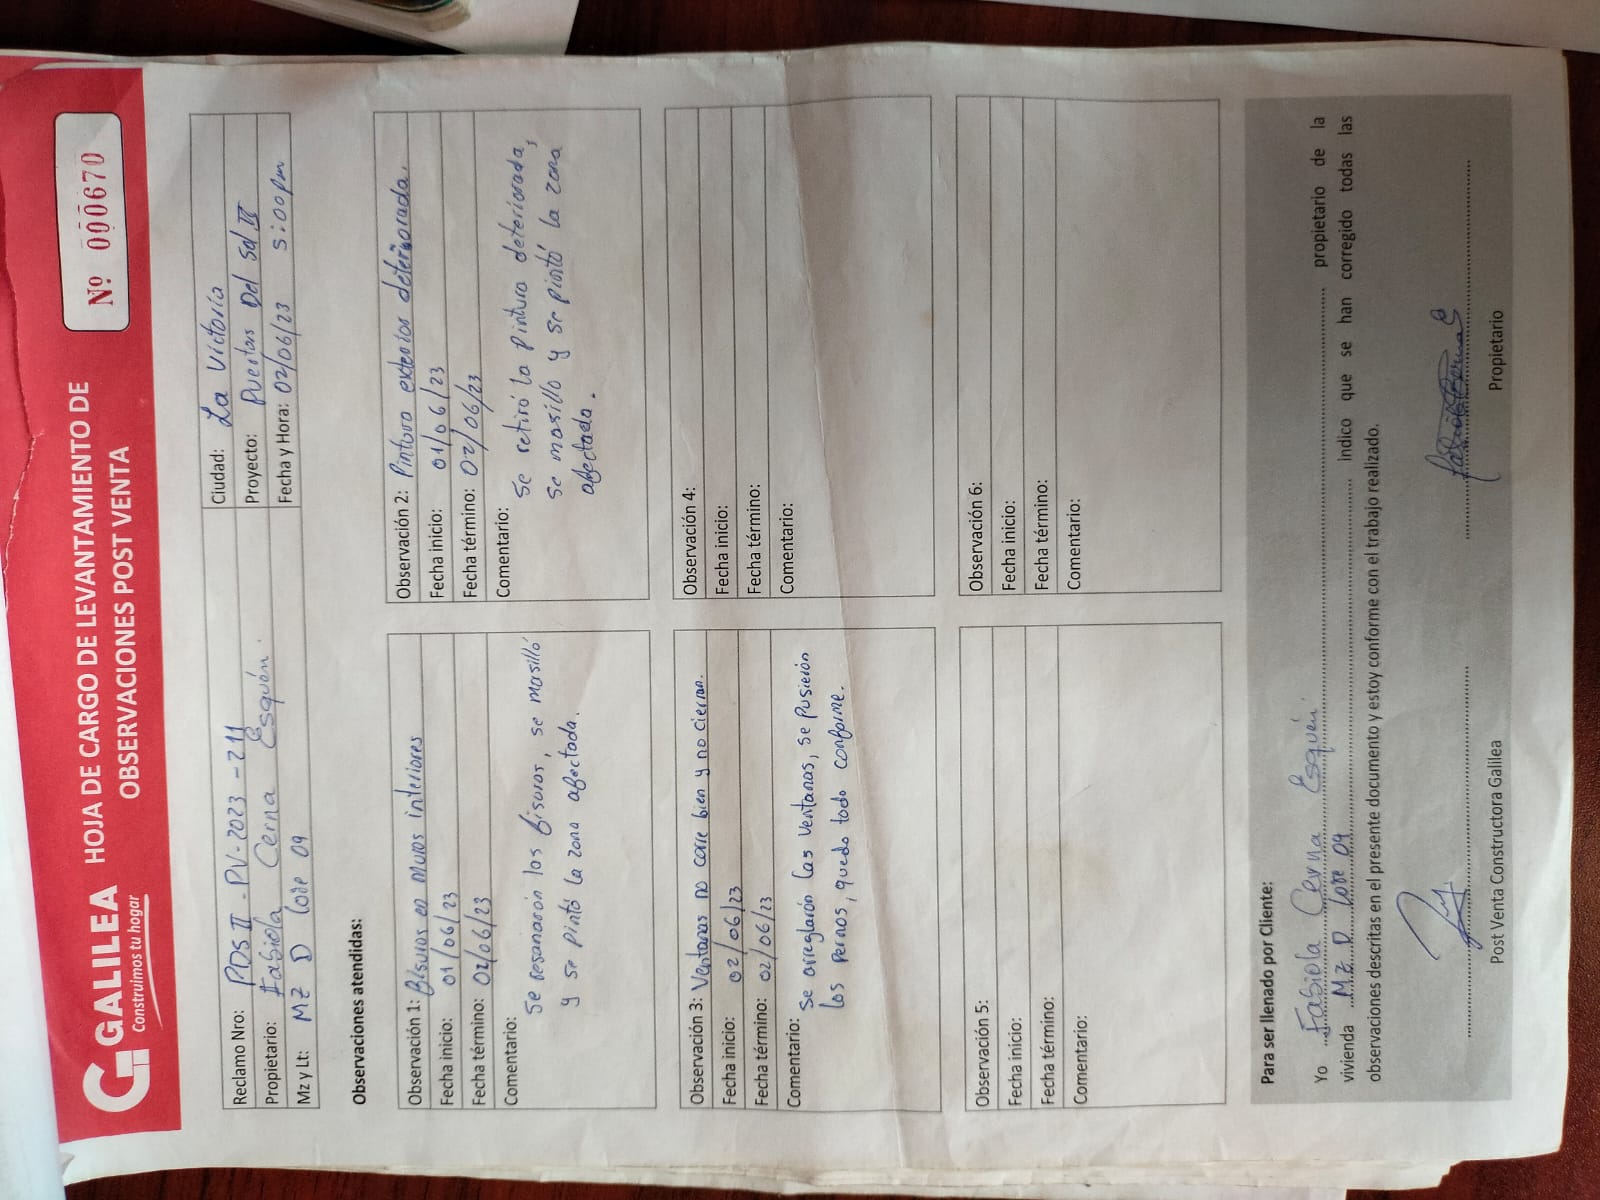 GALILEA
Construimos tu hogar
HOJA DE CARGO DE LEVANTAMIENTO DE
OBSERVACIONES POST VENTA
Nº 000670
Reclamo Nro: PDS II - PV-2023 - 211
Ciudad: La Victoria
Propietario: Fabiola Cerna Esquén.
Proyecto: Puertas Del Sol II
Mz y Lt: MZ D lote 09
Fecha y Hora: 02/06/23 5:00pm
Observaciones atendidas:
Observación 1: Fisuras en Muros interiores
Fecha inicio: 01/06/23
Fecha término: 02/06/23
Comentario:
Se resanarón las fisuras, se masilló
y se pintó la zona afectada.
Observación 2: Pintura exterior deteriorada.
Fecha inicio: 01/06/23
Fecha término: 02/06/23
Comentario:
Se retiró la pintura deteriorada,
se masillo y se pintó la zona
afectada.
Observación 3: Ventanas no corre bien y no cierran.
Fecha inicio: 02/06/23
Fecha término: 02/06/23
Comentario:
Se arreglarón las ventanas, se pusierón
los pernos, quedo todo conforme.
Observación 4:
Fecha inicio:
Fecha término:
Comentario:
Observación 5:
Fecha inicio:
Fecha término:
Comentario:
Observación 6:
Fecha inicio:
Fecha término:
Comentario:
Para ser llenado por Cliente:
Yo Fabiola Cerna Esquén. propietario de la
vivienda MZ D lote 09 indico que se han corregido todas las
observaciones descritas en el presente documento y estoy conforme con el trabajo realizado.
Post Venta Constructora Galilea
Propietario